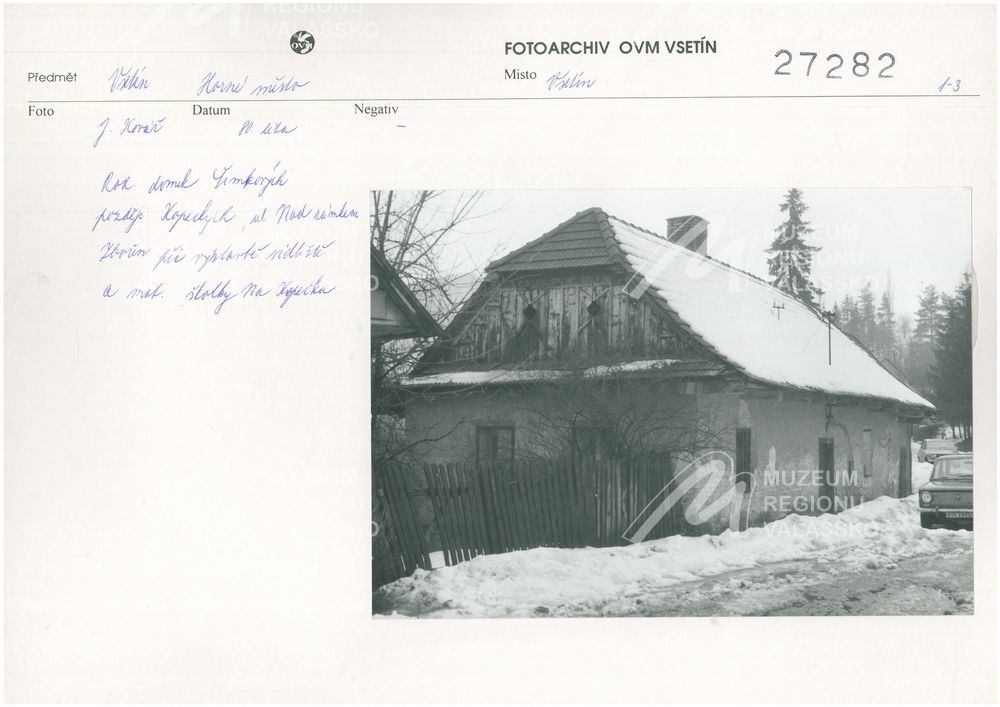 OVM
FOTOARCHIV OVM VSETÍN
27282
Předmět Vsetín Horní město
Místo Vsetín
1-3
Foto Datum Negativ
J. Kovář 80. léta –
Rod. domek Šimkových
později Kopeckých, ul Nad zámkem
Zbořen při výstavbě sídliště
a mat. školky Na Kopečku
MUZEUM
REGIONU
VALAŠSKO